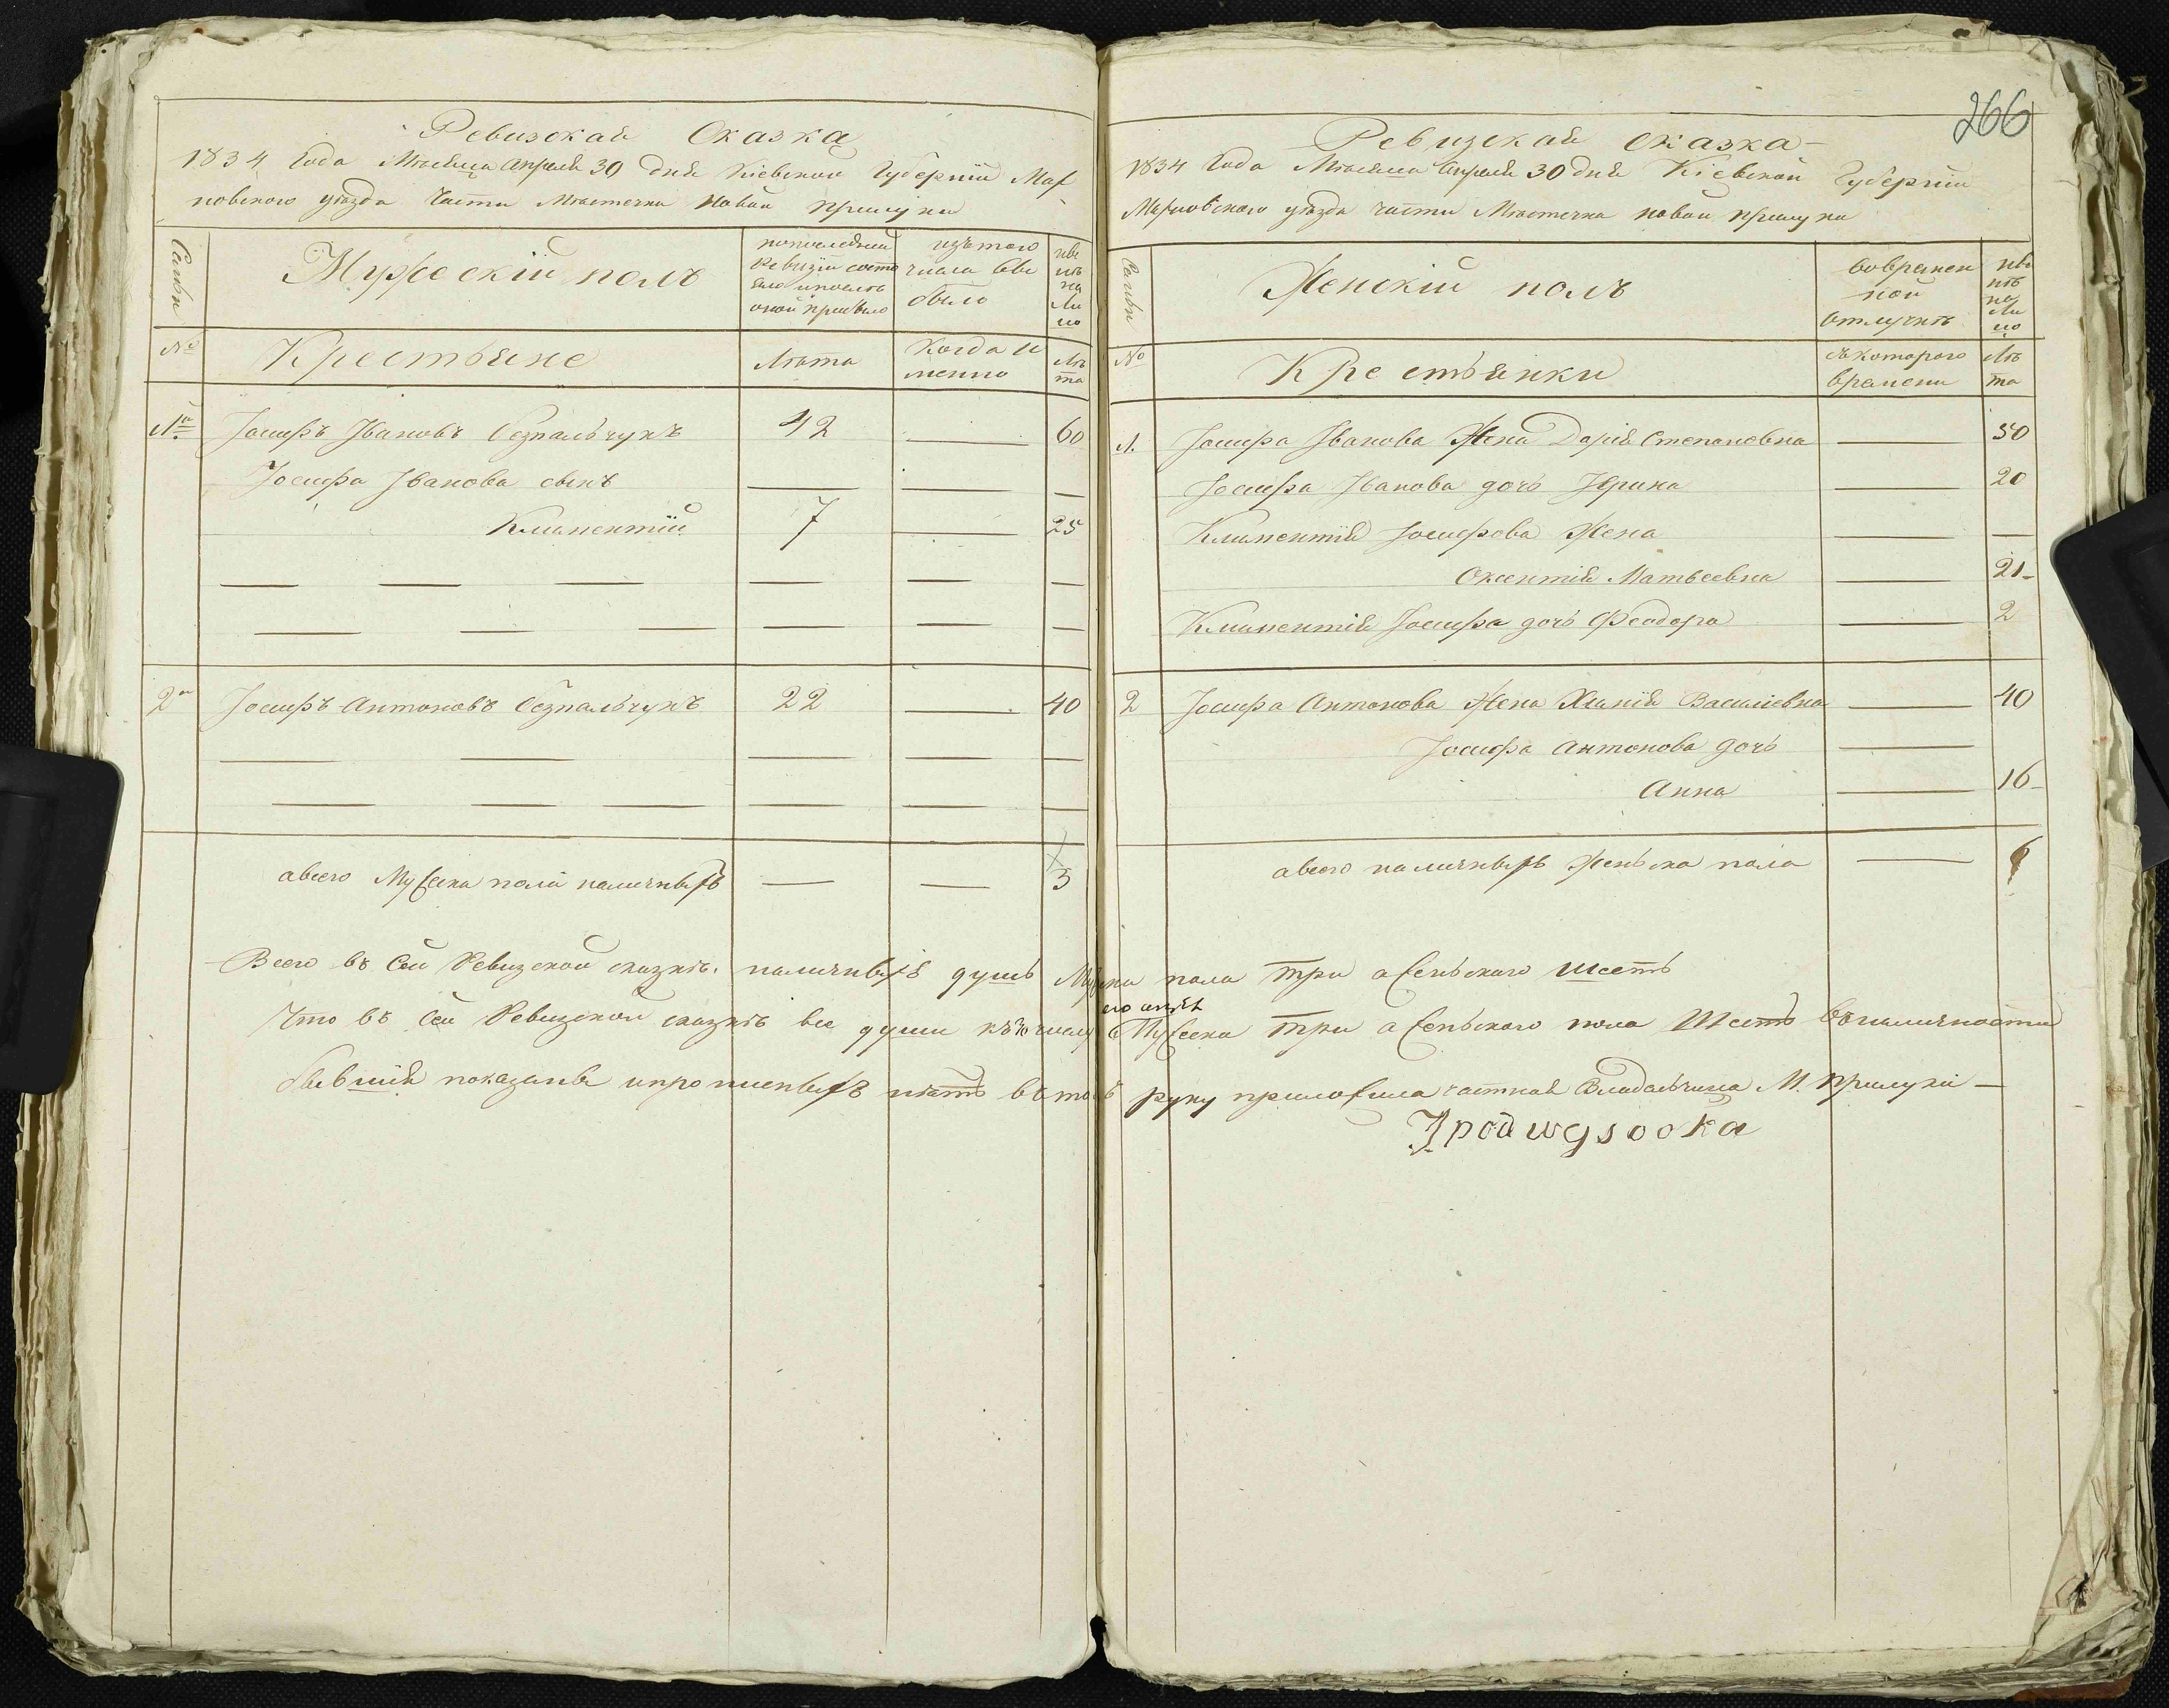 Ревизская Сказка
1834 Года Месяца Апреля 30 дня Кіевской Губерніи Мах
новского уезда Части Местечка Новой прилуки
Семьи
Мужескій полъ
попоследней
Ревизіи состо
яло и после
оной прибыло
изъ того
числа вы
было
ны
не
на
ли
цо
№
Крестьяне
Лета
Когда и
менно
Ле
та
1й Іосифъ Ивановъ 42 — 60
Іосифа Іванова сынъ — — —
Климентій 7 — 25
— — — — — —
— — — — — —
2й Іосифъ Антоновъ 22 — 40
— — — — —
— — — — — —
а всего Мужеска пола наличныхъ — — 3
266
Ревизская Сказка
1834 Года Месяца Апреля 30 дня Кіевской Губерніи
Махновского уезда части Местечка новой прилуки
Семьи
Женскій полъ
вовремен
ной
отлучке
ны
не
на
ли
цо
№
Крестьянки
съкоторого
времени
Ле
та
1. Іосифа Іванова Жена Дарія Степановна — 50
Іосифа Іванова дочь Ирина — 20
Климентія Іосифова Жена — —
Оксентія Матвеевна — 21
Климентія Іосифа дочь Феодора — 2
2 Іосифа Антонова Жена Василіевна — 40
Іосифа Антонова дочь —
Анна — 16
а всего наличныхъ Женьска пола — 6
Всего въ Сей Ревизской сказкѣ наличныхъ душъ Мужеска пола три а женьского шесть
Что въ Сей Ревизской сказкѣ все души Мужеска три а женьского пола Шесть въ наличности
бывшія показаны и прописныхъ нѣтъ въ томъ руку приложила частная Владѣльчица М. Прилуки —